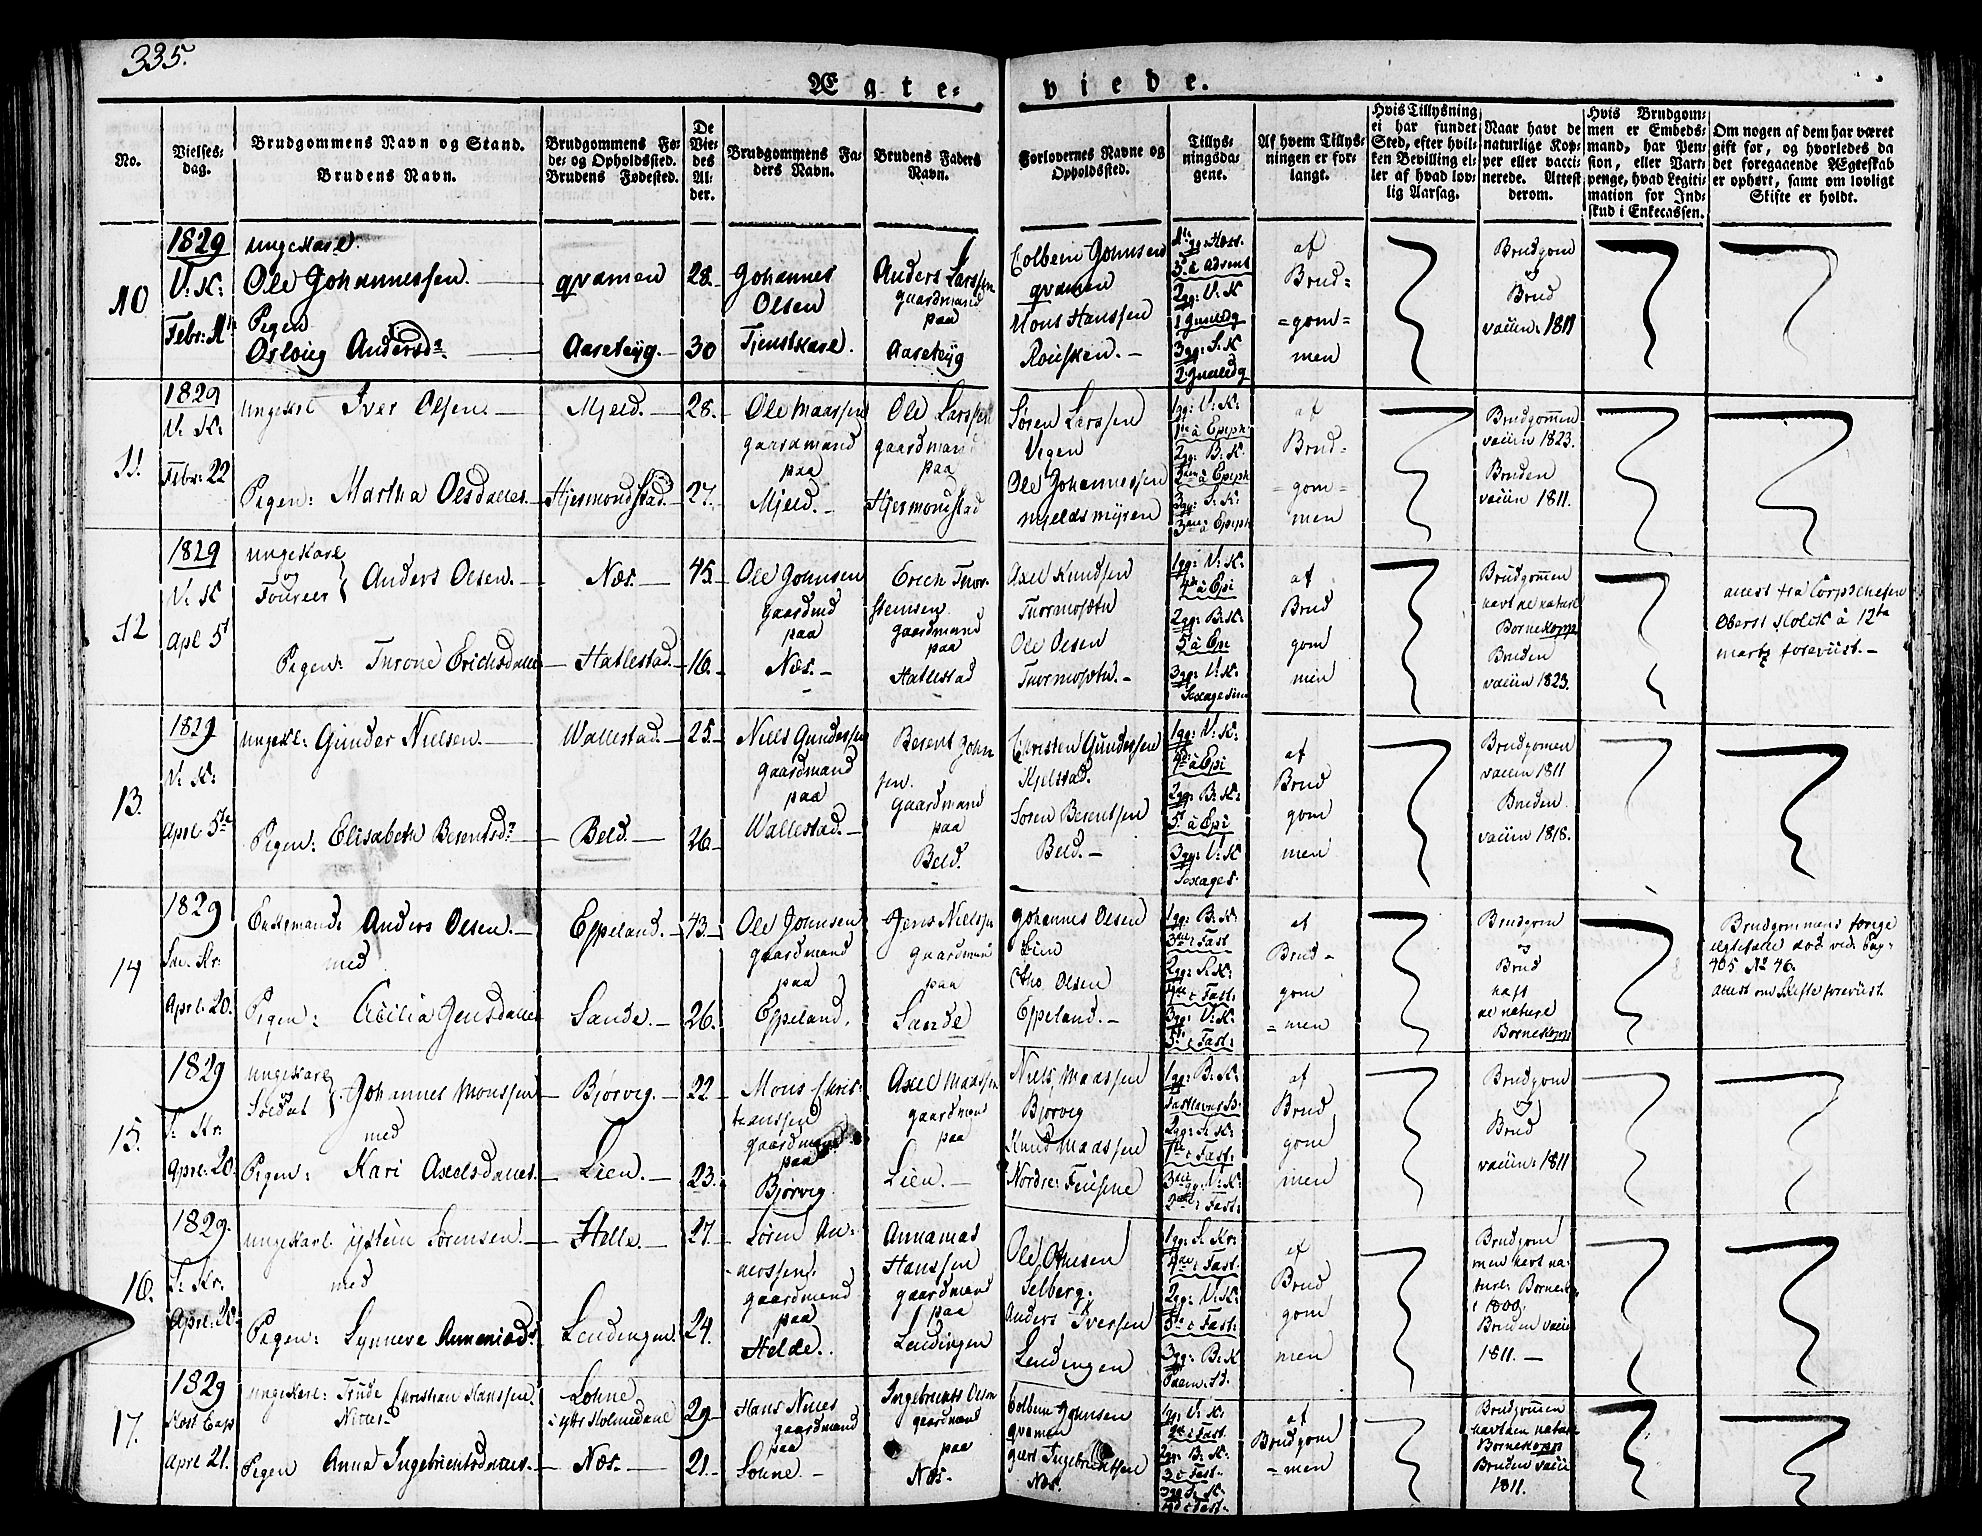 335.
Ægte-
viede.
No.
Vielses-
dag.
Brudgommens Navn og Stand.
Brudens Navn.
Brudgommens Fø-
de- og Opholdssted.
Brudens Fødested.
De
Vie-
des
Al-
der.
Brudgommens Fa-
ders Navn.
Brudens Faders
Navn.
Forlovernes Navne og
Opholdssted.
Tillys-
ningsda-
gene.
Af hvem Tillys-
ningen er for-
langt.
Hvis Tillysning
ei har fundet
Sted, efter hvil-
ken Bevilling el-
ler af hvad lov-
lig Aarsag.
Naar havt de
naturlige Kop-
per eller vacci-
nerede. Attest
derom.
Hvis Brudgom-
men er Embeds-
mand, har Pen-
sion, eller Vart-
penge, hvad Legiti-
mation for Ind-
skud i Enkecassen.
Om nogen af dem har været
gift før, og hvorledes da
det foregaaende Ægteskab
er ophørt, samt om lovligt
Skifte er holdt.
10
1829
V: K:
Febr:
ungekarl.
Ole Johannessen.
Pigen
Andersd:
qvamen
Aareteyg.
28.
30
Johannes
Olsen
Tjenstkarl.
Anders Larssen
gaardmand
paa
Aareteyg
qvamen
Mons Hanssen
af
Brud=
=gom=
men
Brudgom
og
Brud
vacin: 1811
11.
1829
V: K:
Febr: 22
ungekarl Iver Olsen
Pigen: Martha Olsdatter
Mjeld.
Hjermondstad.
28.
27.
Ole Maassen
gaardmand
paa
Mjeld.
Ole Larssen
gaardmand
paa
Hjermondstad
Søren Larssen
Vegen
Ole Johannessen
Mjeldsmyren
1gg: V: K:
2gg: B: K:
3gg: S: K:
af
Brud=
=gom=
men
Brudgommen
vacin 1823.
Bruden
vacin 1811.
12
1829
V: K
Apl 5t
ungekarl
og
Foureer } Anders Olsen.
Pigen: Turone Erichsdatter
Næs.
Hatlestad.
45.
16.
Ole Johnsen
gaardmd
paa
Næs.
Erich Thor-
steinsen.
gaardmand
paa
Hatlestad
Axel Knudsen
Ole Olsen
1gg: V: K:
2gg: B: K:
3gg: V: K:
af
Brud
gom
men
Brudgommen
havt de naturl
Børnekopp
Bruden
vacin 1823.
attest fra Corpschefen
Oberst à 12te
marts foreviist.
13.
1829
V: K:
Aprl 5te
ungekl: Gunder Nielsen.
Pigen: Elisabeth Berentsd:
Wallestad.
Beld.
25.
26.
Niels Gundersen
gaardmand
paa
Wallestad.
Berent John
sen.
gaardmand
paa
Beld.
Christen Gundersen
Kjelstad.
Søren Berentsen
Beld.
1gg: V: K:
2gg: B: K:
3gg: V: K
af
Brud
gom
men
Brudgommen
vacin 1811
Bruden
vacin 1818.
14
1829
Aprl: 20.
Enkemand: Anders Olsen.
med
Pigen: Cecilia Jensdatter
Eppeland.
Sande.
43.
26.
Ole Johnsen
gaardmand
paa
Eppeland.
Jens Nielssen
gaardmand
paa
Sande
Johannes Olsen
Lien
Otto Olsen
Eppeland.
1gg: B: K:
2gg: S: K:
3gg: V: K:
af
Brud=
gom
=men
Brudgom
og
Brud
haft
de naturl
Børnekopp
Brudgommens forrige
ægtefælle død vid: Pag:
405 No 46.
attest om Skifte foreviist.
15.
1829
Aprl: 20
ungekarl
Soldat } Johannes Monssen
med
Pigen: Kari Axelsdatter
Bjørvig.
Lien.
22
23.
Mons Chris-
tianssen
gaardmand
paa
Bjørvig
Axel Maassen
gaardmand
paa
Lien.
Niels Maassen
Bjørvig
Knud Maassen
Nordre:
1gg: B: K:
2gg: S: K:
af
Brud
gom
men
Brudgom
og
Brud
vacin: 1811
16.
1829.
Aprl: 20
ungekarl. Sørensen.
med
Pigen: Synneve
Helle.
Lendingen.
27.
24.
Søren An-
derssen.
gaardmand
paa
Helde.
Hanssen
gaardmand
paa
Lendingen
Selberg.
Anders Iversen
Lendingen
1gg: S: Kr:
2gg: V: K:
3gg: B: K
af
Brud
gom
men
Brudgom
men havt na-
turl: Bornekop
i 1800.
Bruden vacin
1811.
17.
1829
Aprl 21.
ungekarl: Christian Hanssen
Pigen Anna Ingebrigtsdatter
Lohne
i ytre Holmedal
Næs.
29
21.
gaardmand
paa
Lohne
gaardmand
paa
Næs.
qvamen
Næs.
1gg: V: K:
2gg: B: K:
3gg S: K:
af
Brudgom
=men
Brudgommen
havt de naturl
Bornekopp
Bruden vacin
1811.